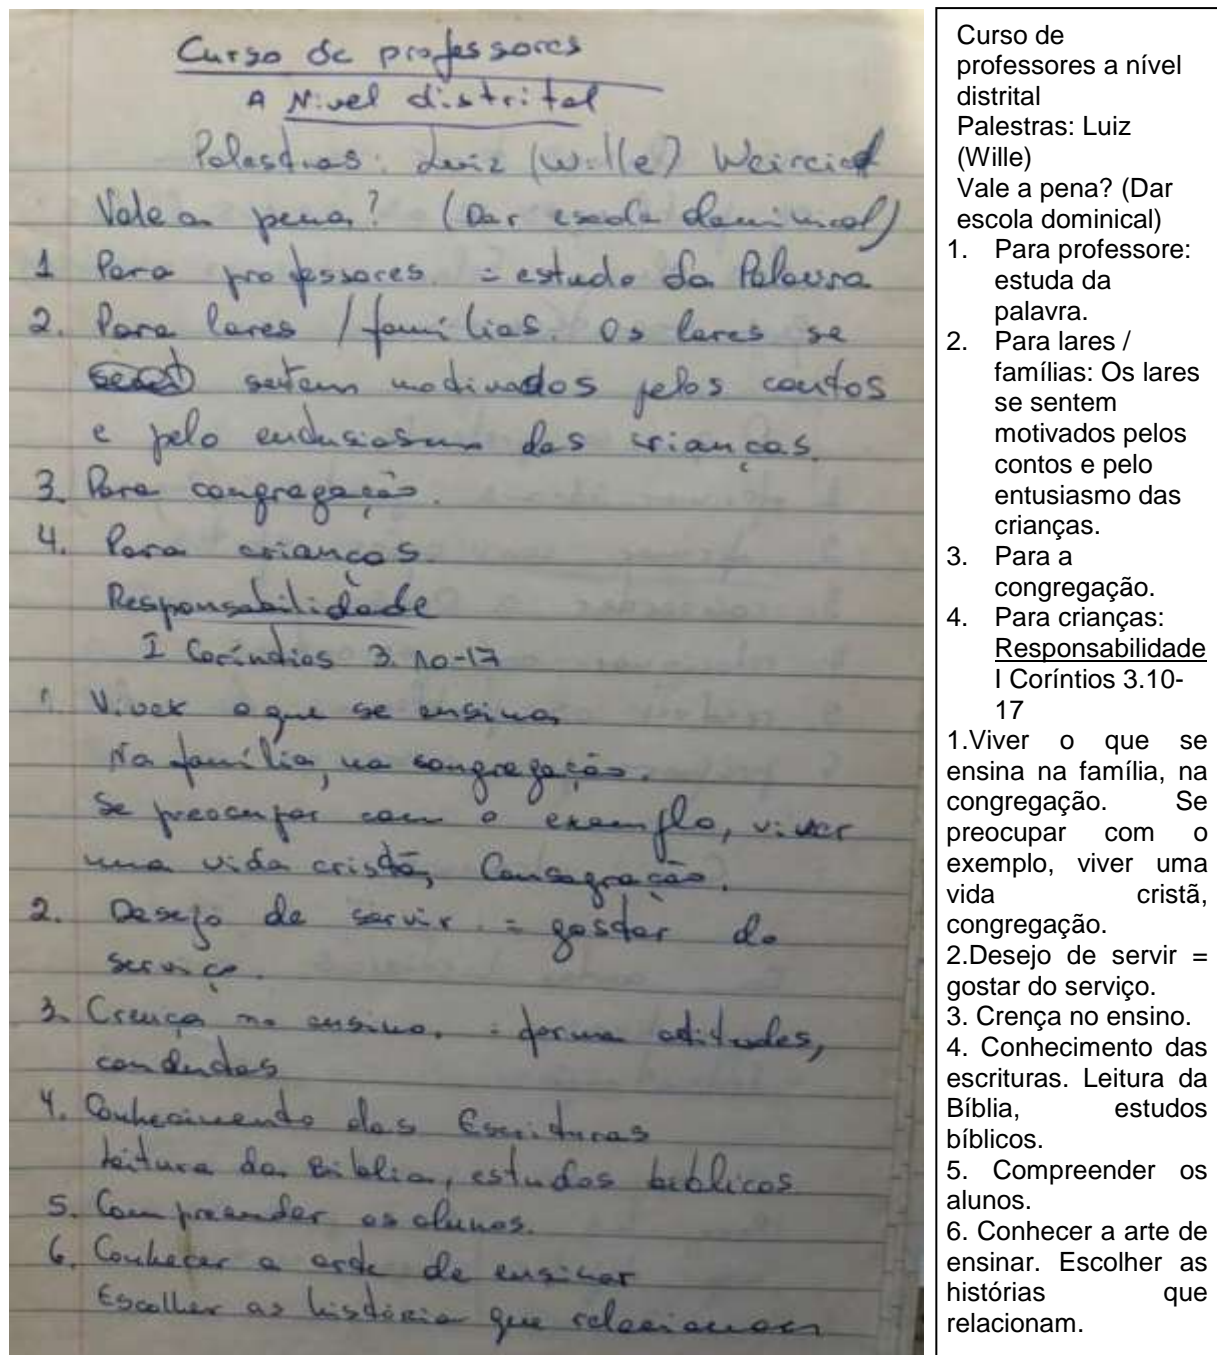 Curso de professores
A Nivel distrital
Palestras: Luiz (Wille)
Vale a pena? (Dar escola dominical)
1 Para professores. = estudo da Palavra
2. Para lares / famílias. Os lares se
sentem motivados pelos contos
e pelo entusiasmo das crianças.
3. Para congregação.
4. Para crianças.
Responsabilidade
I Coríntios 3.10-17
1. Viver o que se ensina
Na família, na congregação.
Se preocupar com o exemplo, viver
uma vida cristã, Consagração.
2. Desejo de servir = gostar do
serviço.
3. Crença no ensino. = forma atitudes,
condutas
4. Conhecimento das Escrituras
Leitura da Bíblia, estudos bíblicos
5. Compreender os alunos.
6. Conhecer a arte de ensinar
Escolher as história que relacionam
Curso de
professores a nível
distrital
Palestras: Luiz
(Wille)
Vale a pena? (Dar
escola dominical)
1. Para professore:
estuda da
palavra.
2. Para lares /
famílias: Os lares
se sentem
motivados pelos
contos e pelo
entusiasmo das
crianças.
3. Para a
congregação.
4. Para crianças:
Responsabilidade
I Coríntios 3.10-
17
1.Viver o que se
ensina na família, na
congregação. Se
preocupar com o
exemplo, viver uma
vida cristã,
congregação.
2.Desejo de servir =
gostar do serviço.
3. Crença no ensino.
4. Conhecimento das
escrituras. Leitura da
Bíblia, estudos
bíblicos.
5. Compreender os
alunos.
6. Conhecer a arte de
ensinar. Escolher as
histórias que
relacionam.